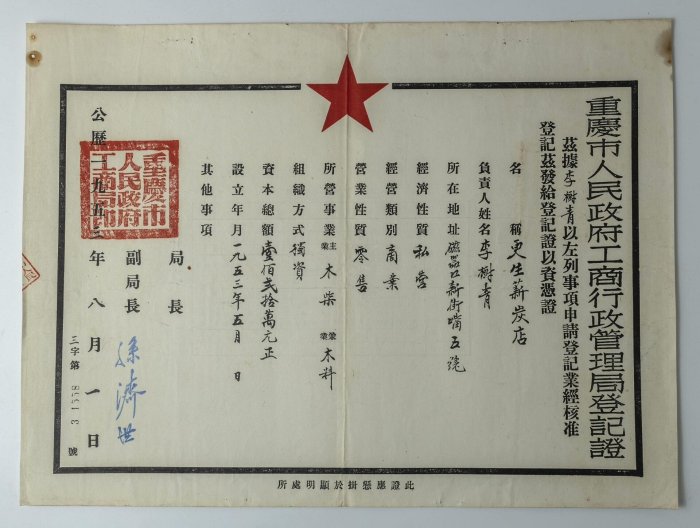 重慶市人民政府工商行政管理局登記證
茲據李樹青以左列事項申請登記業經核准
登記茲發給登記證以資憑證
名稱 更生薪炭店
負責人姓名 李樹青
所在地址 磁器口新街嘴五號
經濟性質 私營
經營類別 商業
營業性質 零售
所營事業 主業 木柴 兼業 木料
組織方式 獨資
資本總額 壹佰貳拾萬元正
設立年月 一九五三年五月 日
其他事項
局長
副局長 孫濟世
重慶市人民政府工商局印
公曆一九五三年八月一日
三字第 85513 號
此證應懸掛於顯明處所